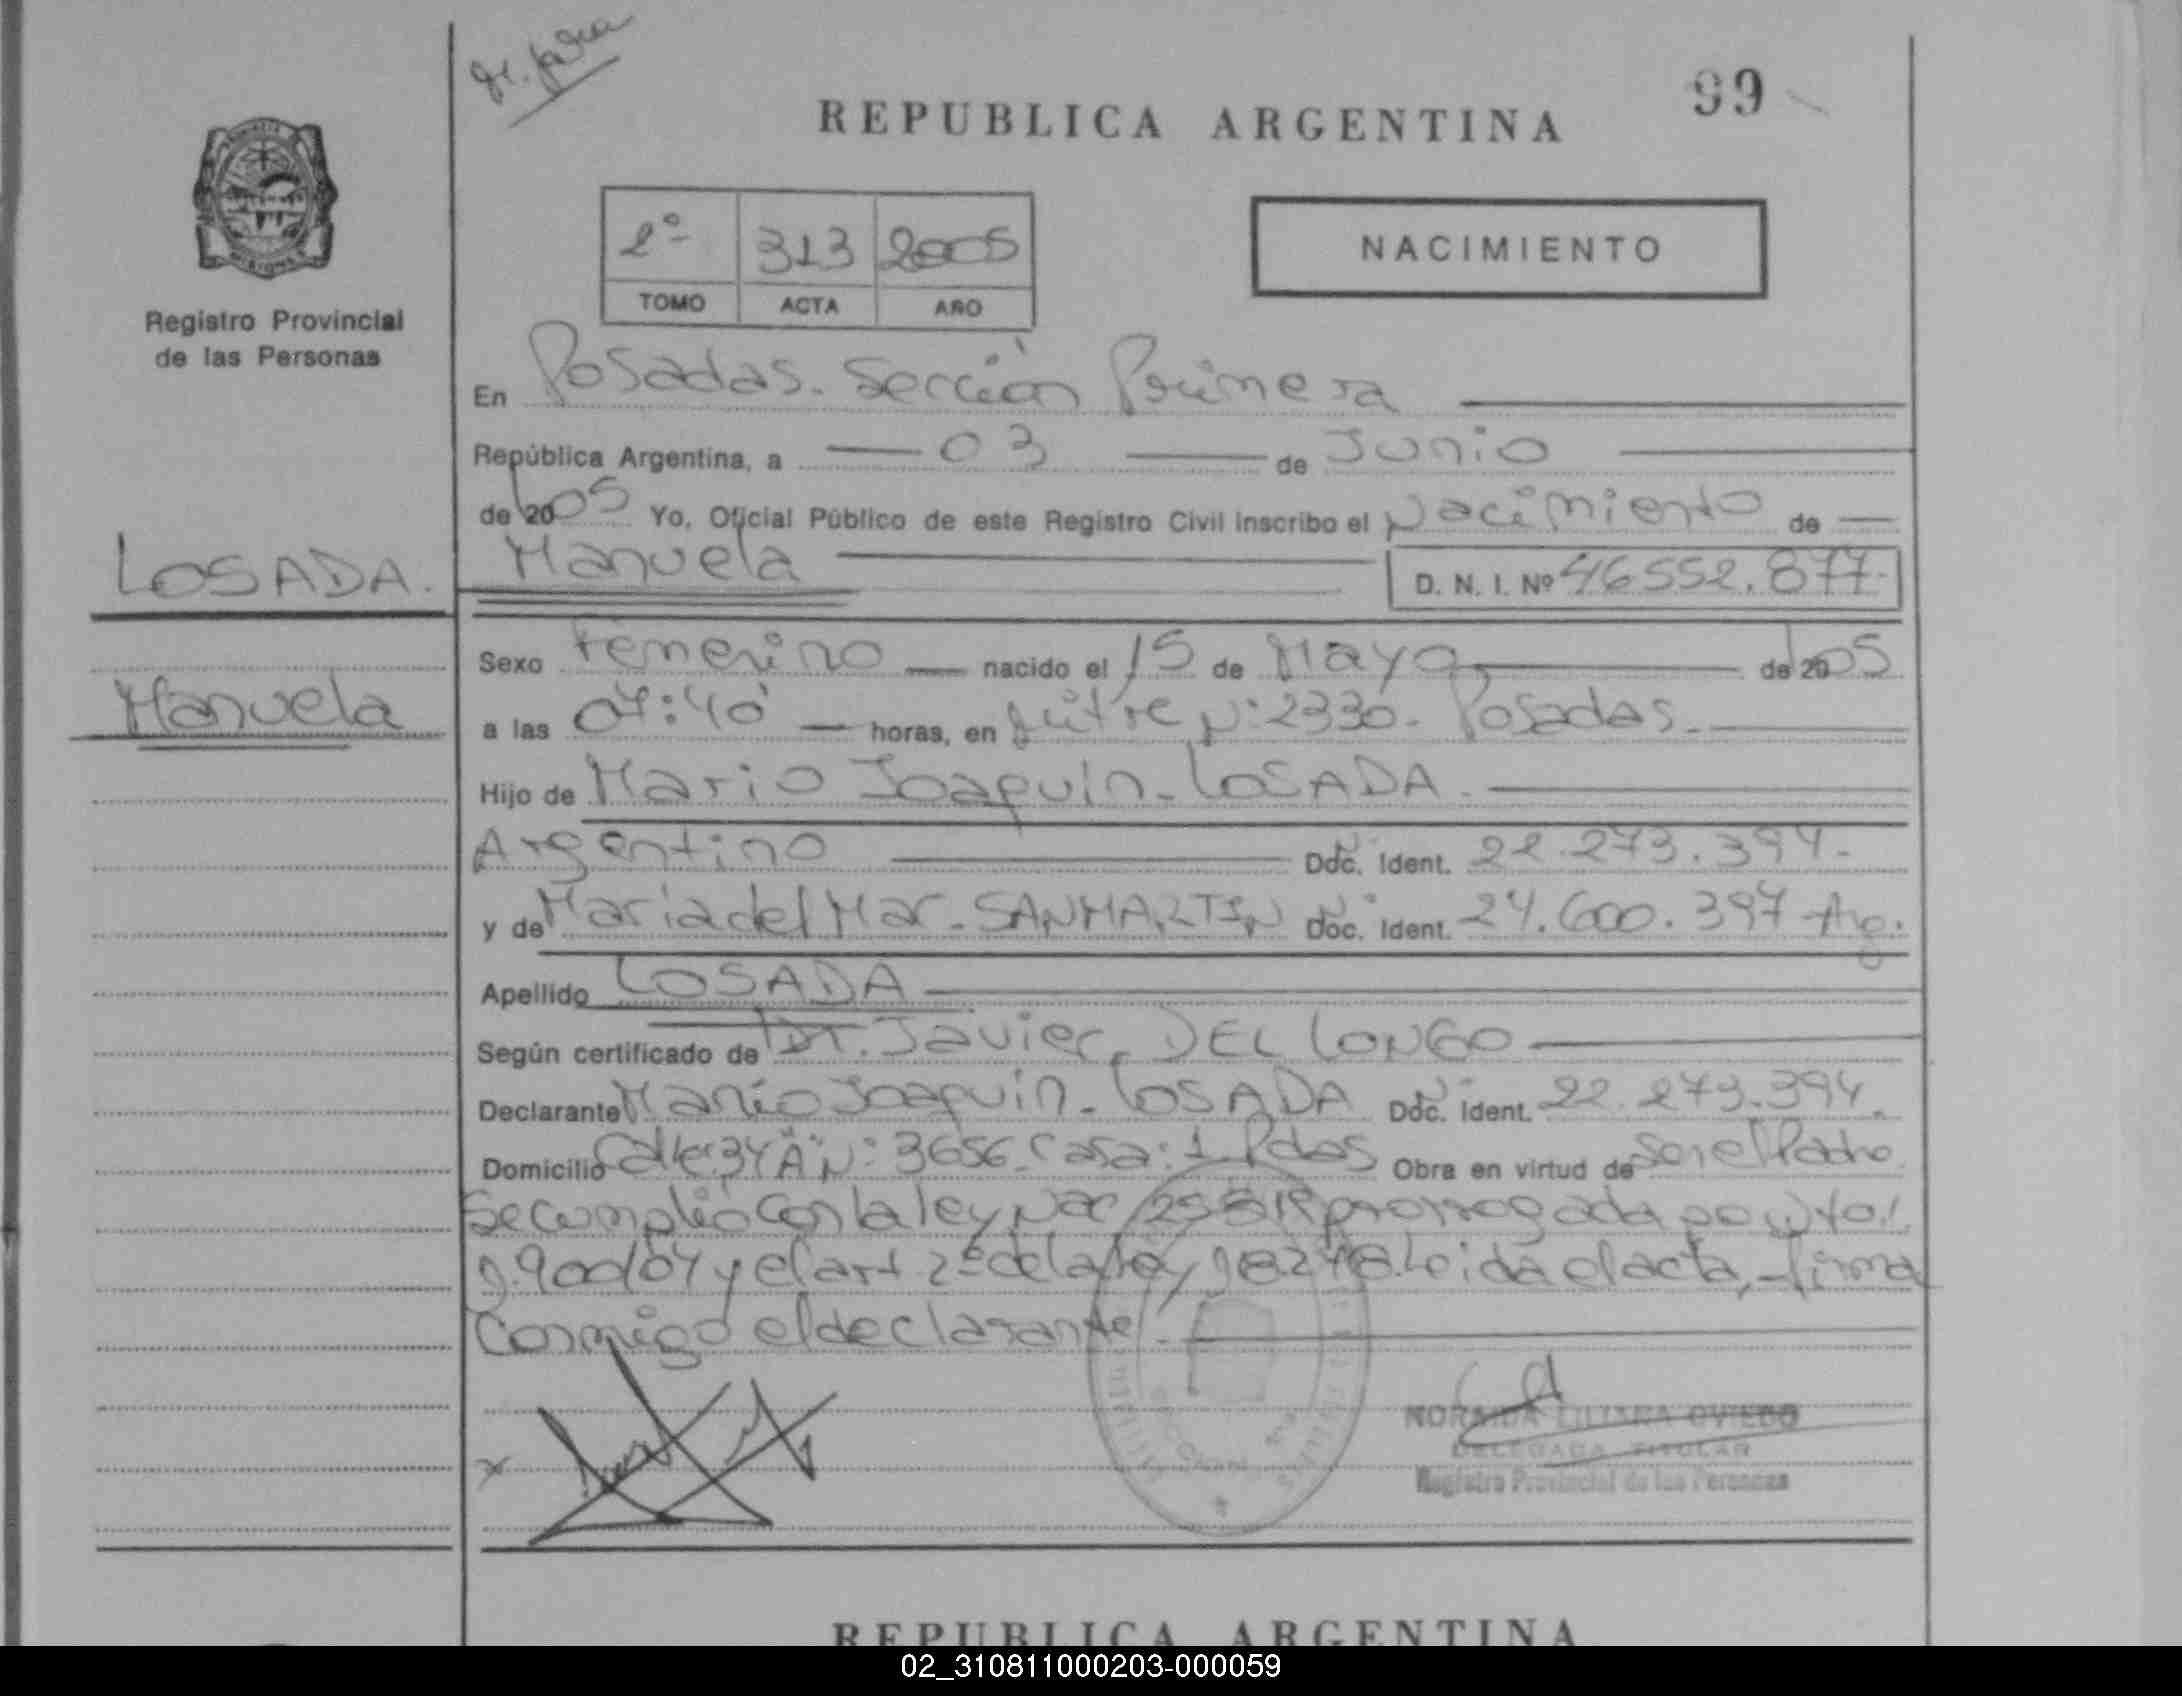 99
REPUBLICA ARGENTINA
2º 313 2005
TOMO ACTA AÑO
NACIMIENTO
Registro Provincial
de las Personas
En Posadas. Sección Primera
República Argentina, a 03 de Junio
de 2005 Yo, Oficial Público de este Registro Civil inscribo el Nacimiento de
Manuela D. N. I. Nº 46552.877.
LOSADA.
Manuela
Sexo Femenino nacido el 15 de Mayo de 2005
a las 07:40 horas, en Mitre Nº: 2330. Posadas.
Hijo de Mario Joaquín. LOSADA.
Argentino Doc. Ident. 22.273.394.
y de María del Mar. SANMARTIN Doc. Ident. 24.600.397 Arg.
Apellido LOSADA
Según certificado de Dr. Javier, DEL LONGO
Declarante Mario Joaquín. LOSADA Doc. Ident. 22.273.394.
Domicilio Calle: 34 "A" Nº: 3656. Casa: 1. Pdas Obra en virtud de Ser el Padre.
Se cumplió con la ley Nac prorrogada
y el art 2º de la ley 18.248. Leida el acta, firma
Conmigo el declarante.
NORAIDA LILIANA OVIEDO
DELEGADA TITULAR
Registro Provincial de las Personas
REPUBLICA ARGENTINA
02_310811000203-000059